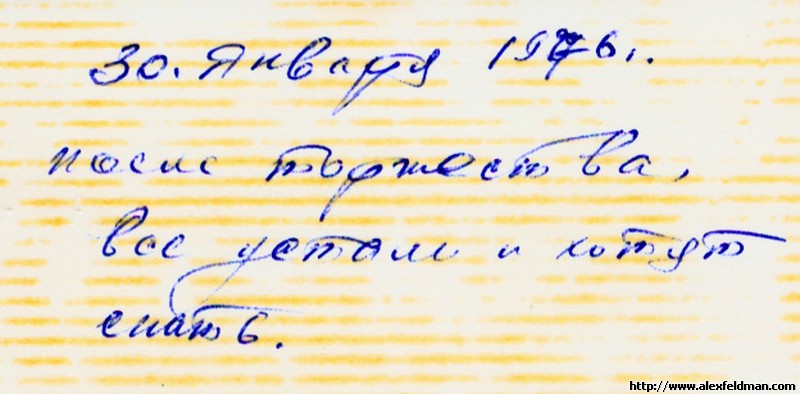 30. Января 1976г.
после торжества,
все устали и хотят
спать.
http://www.alexfeldman.com